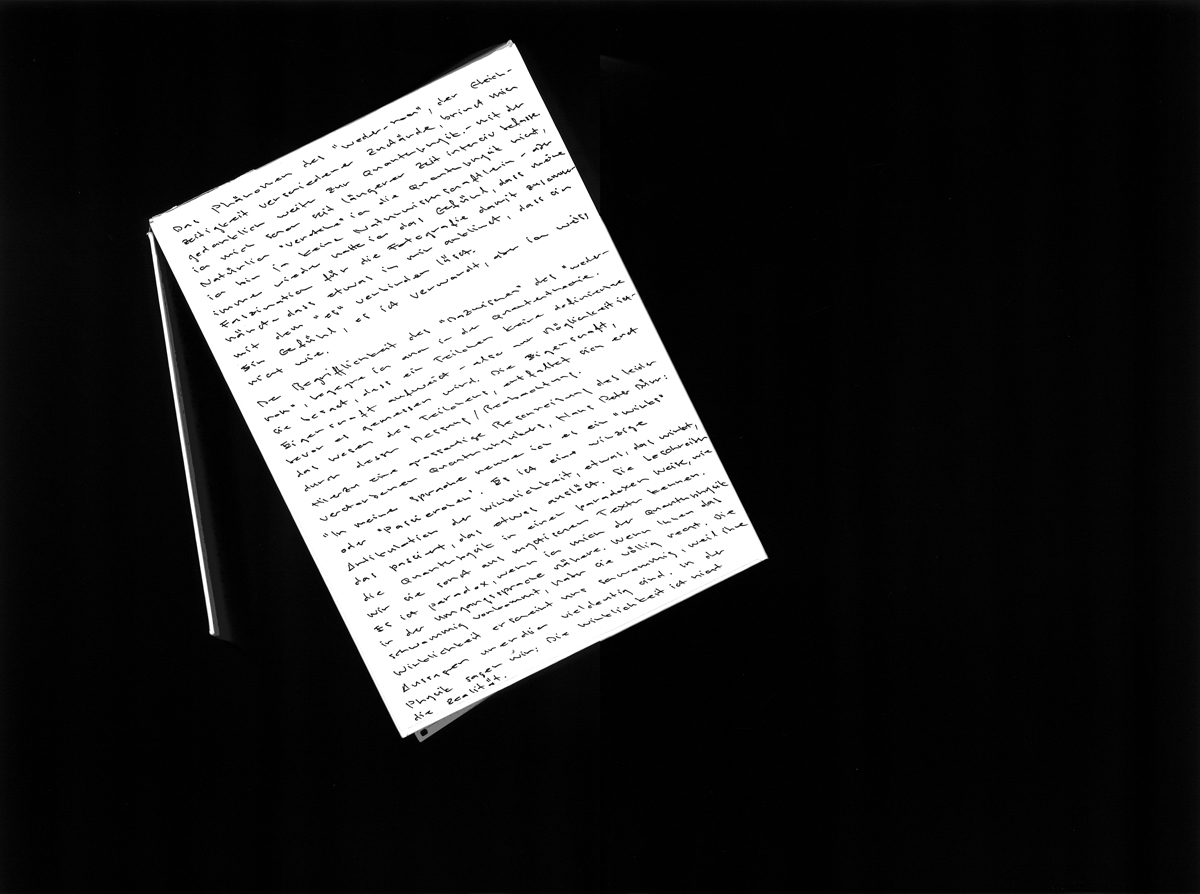 Das Phänomen des "weder-noch", der Gleich-
zeitigkeit verschiedener Zustände, bringt mich
gedanklich weiter zur Quantenphysik – mit der
ich mich schon seit längerer Zeit intensiv befasse
Natürlich "verstehe" ich die Quantenphysik nicht,
ich bin ja keine Naturwissenschaftlerin – aber
immer wieder hatte ich das Gefühl, dass meine
Faszination für die Fotografie damit zusammen
hängt – dass etwas in mir anklingt, dass sich
mit dem "es" verbinden lässt.
Ein Gefühl, es ist verwandt, aber ich weiss
nicht wie.
Der Begrifflichkeit des "Dazwischen" des "weder
noch", begegne ich auch in der Quantentheorie.
Sie besagt, dass ein Teilchen keine definierte
Eigenschaft aufweist – also nur Möglichkeit ist –
bevor es gemessen wird. Die Eigenschaft,
das Wesen des Teilchens, entfaltet sich erst
durch dessen Messung / Beobachtung.
Hierzu eine grossartige Beschreibung des leider
verstorbenen Quantenphysikers, Hans Peter Dürr:
"In meiner Sprache nenne ich es ein "Wirks"
oder "Passierchen". Es ist eine winzige
Artikulation der Wirklichkeit, etwas, das wirkt,
das passiert, das etwas auslöst. Sie beschreiben
die Quantenphysik in einer paradoxen Weise, wie
wir sie sonst aus mystischen Texten kennen.
Es ist paradox, wenn ich mich der Quantenphysik
in der Umgangssprache nähere. Wenn Ihnen das
schwammig vorkommt, haben Sie völlig recht. Die
Wirklichkeit erscheint uns schwammig, weil ihre
Aussagen unendlich vieldeutig sind. In der
Physik sagen wir: Die Wirklichkeit ist nicht
die Realität.